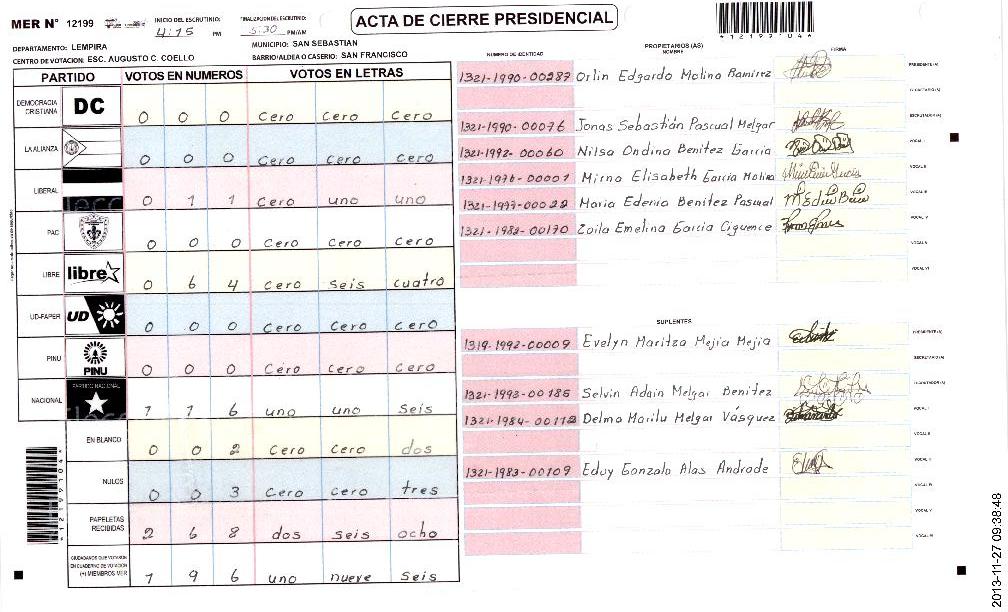 MER N° 12199
INICIO DEL ESCRUTINIO: 4:15 PM
FINALIZACION DEL ESCRUTINIO: 5:30 PM/AM
ACTA DE CIERRE PRESIDENCIAL
*12199104*
DEPARTAMENTO: LEMPIRA
MUNICIPIO: SAN SEBASTIAN
CENTRO DE VOTACION: ESC. AUGUSTO C. COELLO
BARRIO/ALDEA O CASERIO: SAN FRANCISCO
PARTIDO VOTOS EN NUMEROS VOTOS EN LETRAS
DEMOCRACIA CRISTIANA DC 0 0 0 Cero Cero Cero
LA ALIANZA 0 0 0 Cero Cero Cero
LIBERAL 0 1 1 Cero uno uno
PAC 0 0 0 Cero Cero Cero
LIBRE libre 0 6 4 Cero seis cuatro
UD-FAPER UD 0 0 0 Cero Cero Cero
PINU PINU 0 0 0 Cero Cero Cero
NACIONAL PARTIDO NACIONAL 1 1 6 uno uno seis
EN BLANCO 0 0 2 Cero Cero dos
NULOS 0 0 3 Cero Cero tres
PAPELETAS RECIBIDAS 2 6 8 dos seis ocho
CIUDADANOS QUE VOTARON EN CUADERNO DE VOTACION (+) MIEMBROS MER 1 9 6 uno nueve seis
NUMERO DE IDENTIDAD
PROPIETARIOS (AS)
NOMBRE
FIRMA
1321-1990-00287 Orlin Edgardo Molina Ramirez PRESIDENTE (A)
SECRETARIO (A)
1321-1990-00076 Jonas Sebastián Pascual Melgar ESCRUTADOR (A)
1321-1992-00060 Nilsa Ondina Benitez Garcia VOCAL I
1321-1976-00007 Mirna Elisabeth Garcia Molina VOCAL II
1321-1997-00022 Maria Edenia Benitez Pascual VOCAL III
1321-1982-00170 Zoila Emelina Garcia Ciguence VOCAL IV
VOCAL V
VOCAL VI
SUPLENTES
1319-1992-00009 Evelyn Maritza Mejia Mejia PRESIDENTE (A)
SECRETARIO (A)
1321-1993-00185 Selvin Adain Melgar Benitez ESCRUTADOR (A)
1321-1984-00112 Delma Marilu Melgar Vásquez VOCAL I
VOCAL II
1321-1983-00109 Eduy Gonzalo Alas Andrade VOCAL III
VOCAL IV
VOCAL V
VOCAL VI
*12199104*
2013-11-27 09:38:48